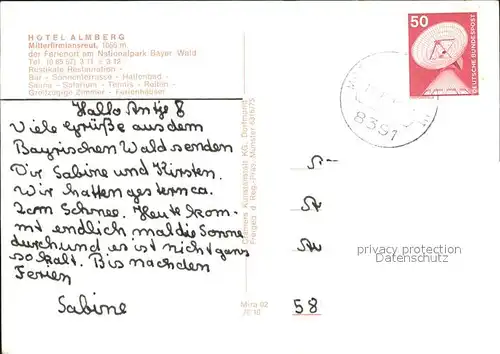 HOTEL ALMBERG
Mitterfirmiansreut, 1066 m
der Ferienort am Nationalpark Bayer. Wald
Rustikale Restauration -
Bar - Sonnenterrasse - Hallenbad -
Sauna - Solarium - Tennis - Reiten -
Großzügige Zimmer - Ferienhäuser
Hallo Antje
Viele Grüße aus dem
Bayrischen Wald senden
Dir Sabine und Kirsten.
Wir hatten gestern ca.
2cm Schnee. Heute kom-
mt endlich mal die Sonne
durch und es ist nicht ganz
so kalt. Bis nach den
Ferien
Sabine
Cramers Kunstanstalt KG, Dortmund
Mira 02
50
DEUTSCHE BUNDESPOST
8391
privacy protection
Datenschutz
58